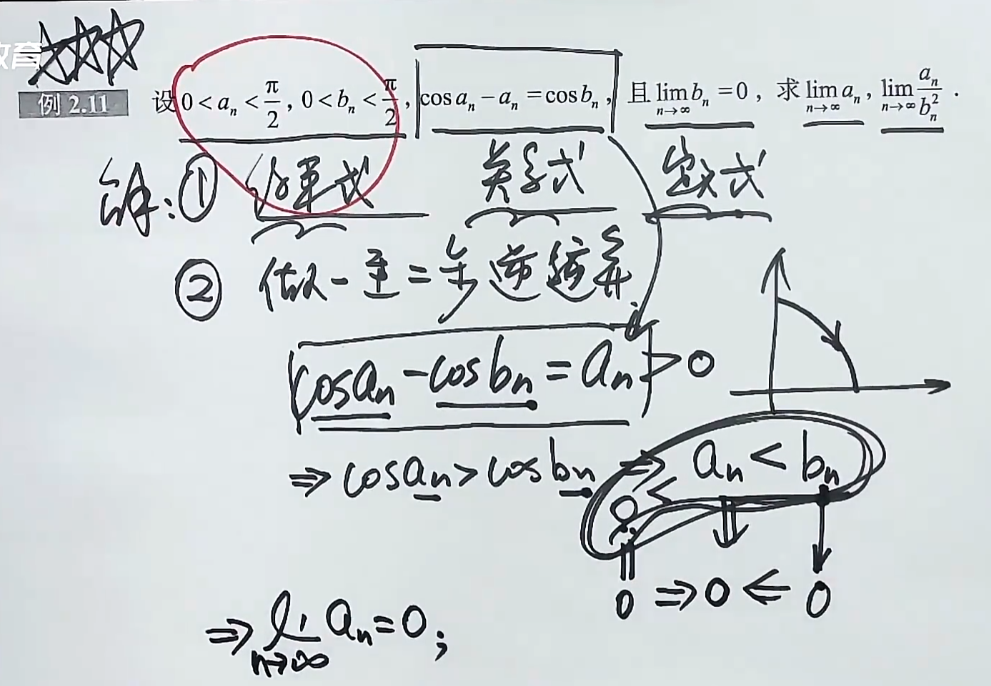 教育
例 2.11 设 0 < aₙ < π/2, 0 < bₙ < π/2, cos aₙ − aₙ = cos bₙ, 且 lim_{n→∞} bₙ = 0, 求 lim_{n→∞} aₙ, lim_{n→∞} aₙ/bₙ².
解: ① 关系式
② 做一至二步逆运算
cos aₙ − cos bₙ = aₙ > 0
⇒ cos aₙ > cos bₙ ⇒ 0 < aₙ < bₙ
0 ⇒ 0 ⇐ 0
⇒ lim_{n→∞} aₙ = 0;